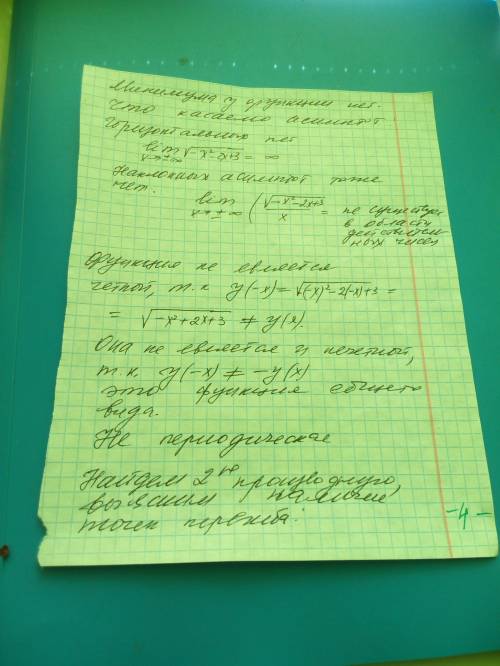 Минимума у функции нет.
Что касаемо асимптот
Горизонтальных нет
lim √-x²-2x+3 = ∞
x→±∞
Наклонных асимптот тоже
нет.
lim (√-x²-2x+3 / x = не существует
x→±∞
в области
действитель
ных чисел
Функция не является
четной, т.к y(-x)=√-(-x)²-2(-x)+3 =
= √-x²+2x+3 ≠ y(x).
Она не является и нечетной,
т.к. y(-x) ≠ -y(x)
это функция общего
вида.
Не периодическая
Найдем 2ую производную,
выясним наличие
точек перегиба.
-4-